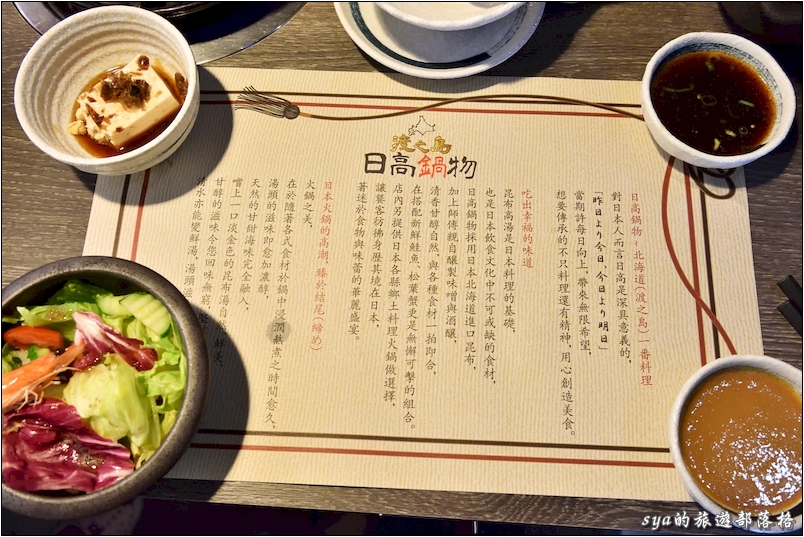 渡之島
日高鍋物
日高鍋物~北海道(渡之島)一番料理
對日本人而言日高是深具意義的,
「昨日より今日、今日より明日」
當期許每日向上,帶來無限希望,
想要傳承的不只料理還有精神,用心創造美食。
吃出幸福的味道
昆布高湯是日本料理的基礎,
也是日本飲食文化中不可或缺的食材,
日高鍋物採用日本北海道進口昆布,
加上師傅親自釀製味噌與酒釀,
清香甘醇自然,與各種食材一拍即合,
在搭配新鮮鮭魚、松葉蟹更是無懈可擊的組合。
店內另提供日本各縣鄉土料理火鍋做選擇,
讓饕客彷彿身歷其境在日本,
著迷於食物與味蕾的華麗盛宴。
日本火鍋的高潮,臻於結尾(締め)
火鍋之美,
在於隨著各式食材於鍋中浸潤熬煮之時間愈久,
湯頭的滋味即愈加濃醇,
天然的甘甜海味完全融入,
嚐上一口淡金色的昆布湯自然鮮美,
甘醇的滋味令您回味無窮,
清水亦能變鮮湯,湯頭滋
sya的旅遊部落格